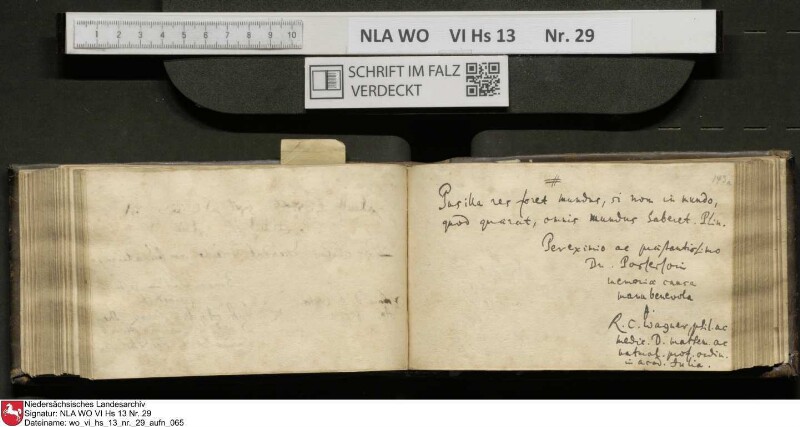 1 2 3 4 5 6 7 8 9 10
NLA WO VI Hs 13 Nr. 29
SCHRIFT IM FALZ
VERDECKT
Pusilla res foret mundus, si non in mundo,
quod quærat, omnis mundus haberet. Plin.
Pereximio ac præstantissimo
Dn.
memoriæ causa
manu benevola
p.
R. C. Wagner, phil. ac
medic. D. mathem. ac
natural. prof. ordin.
in acad. Julia.
Niedersächsisches Landesarchiv
Signatur: NLA WO VI Hs 13 Nr. 29
Dateiname: wo_vi_hs_13_nr._29_aufn_065